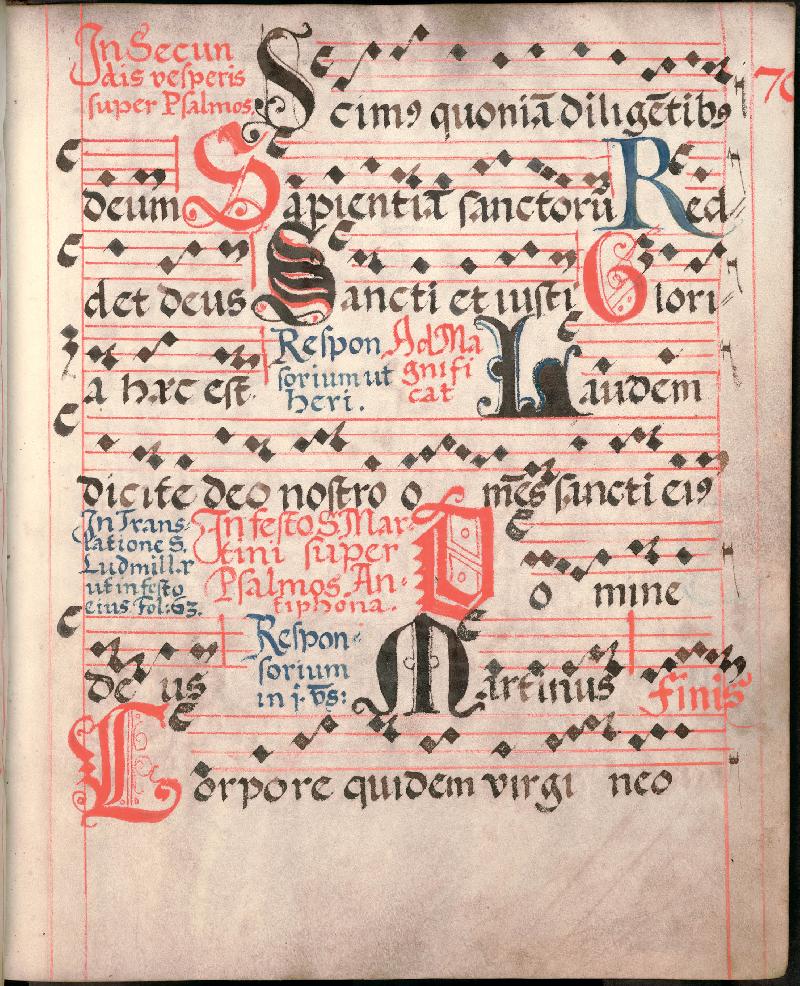 In Secun
dis vesperis
super Psalmos.
70
Scimꝰ quoniā diligētibꝰ
deum Sapientiā sanctorū Red
det deus Sancti et iusti Glori
a hæc est Responsorium ut heri. Ad Magnificat Laudem
dicite deo nostro omēs sancti eiꝰ
In Trans-
latione S.
Ludmillæ
ut in festo
eius Fol: 63.
In festo S Mar-
tini super
Psalmos An-
tiphona.
Domine
deus
Respon-
sorium
in j. vs:
Martinus finis
Corpore quidem virgineo